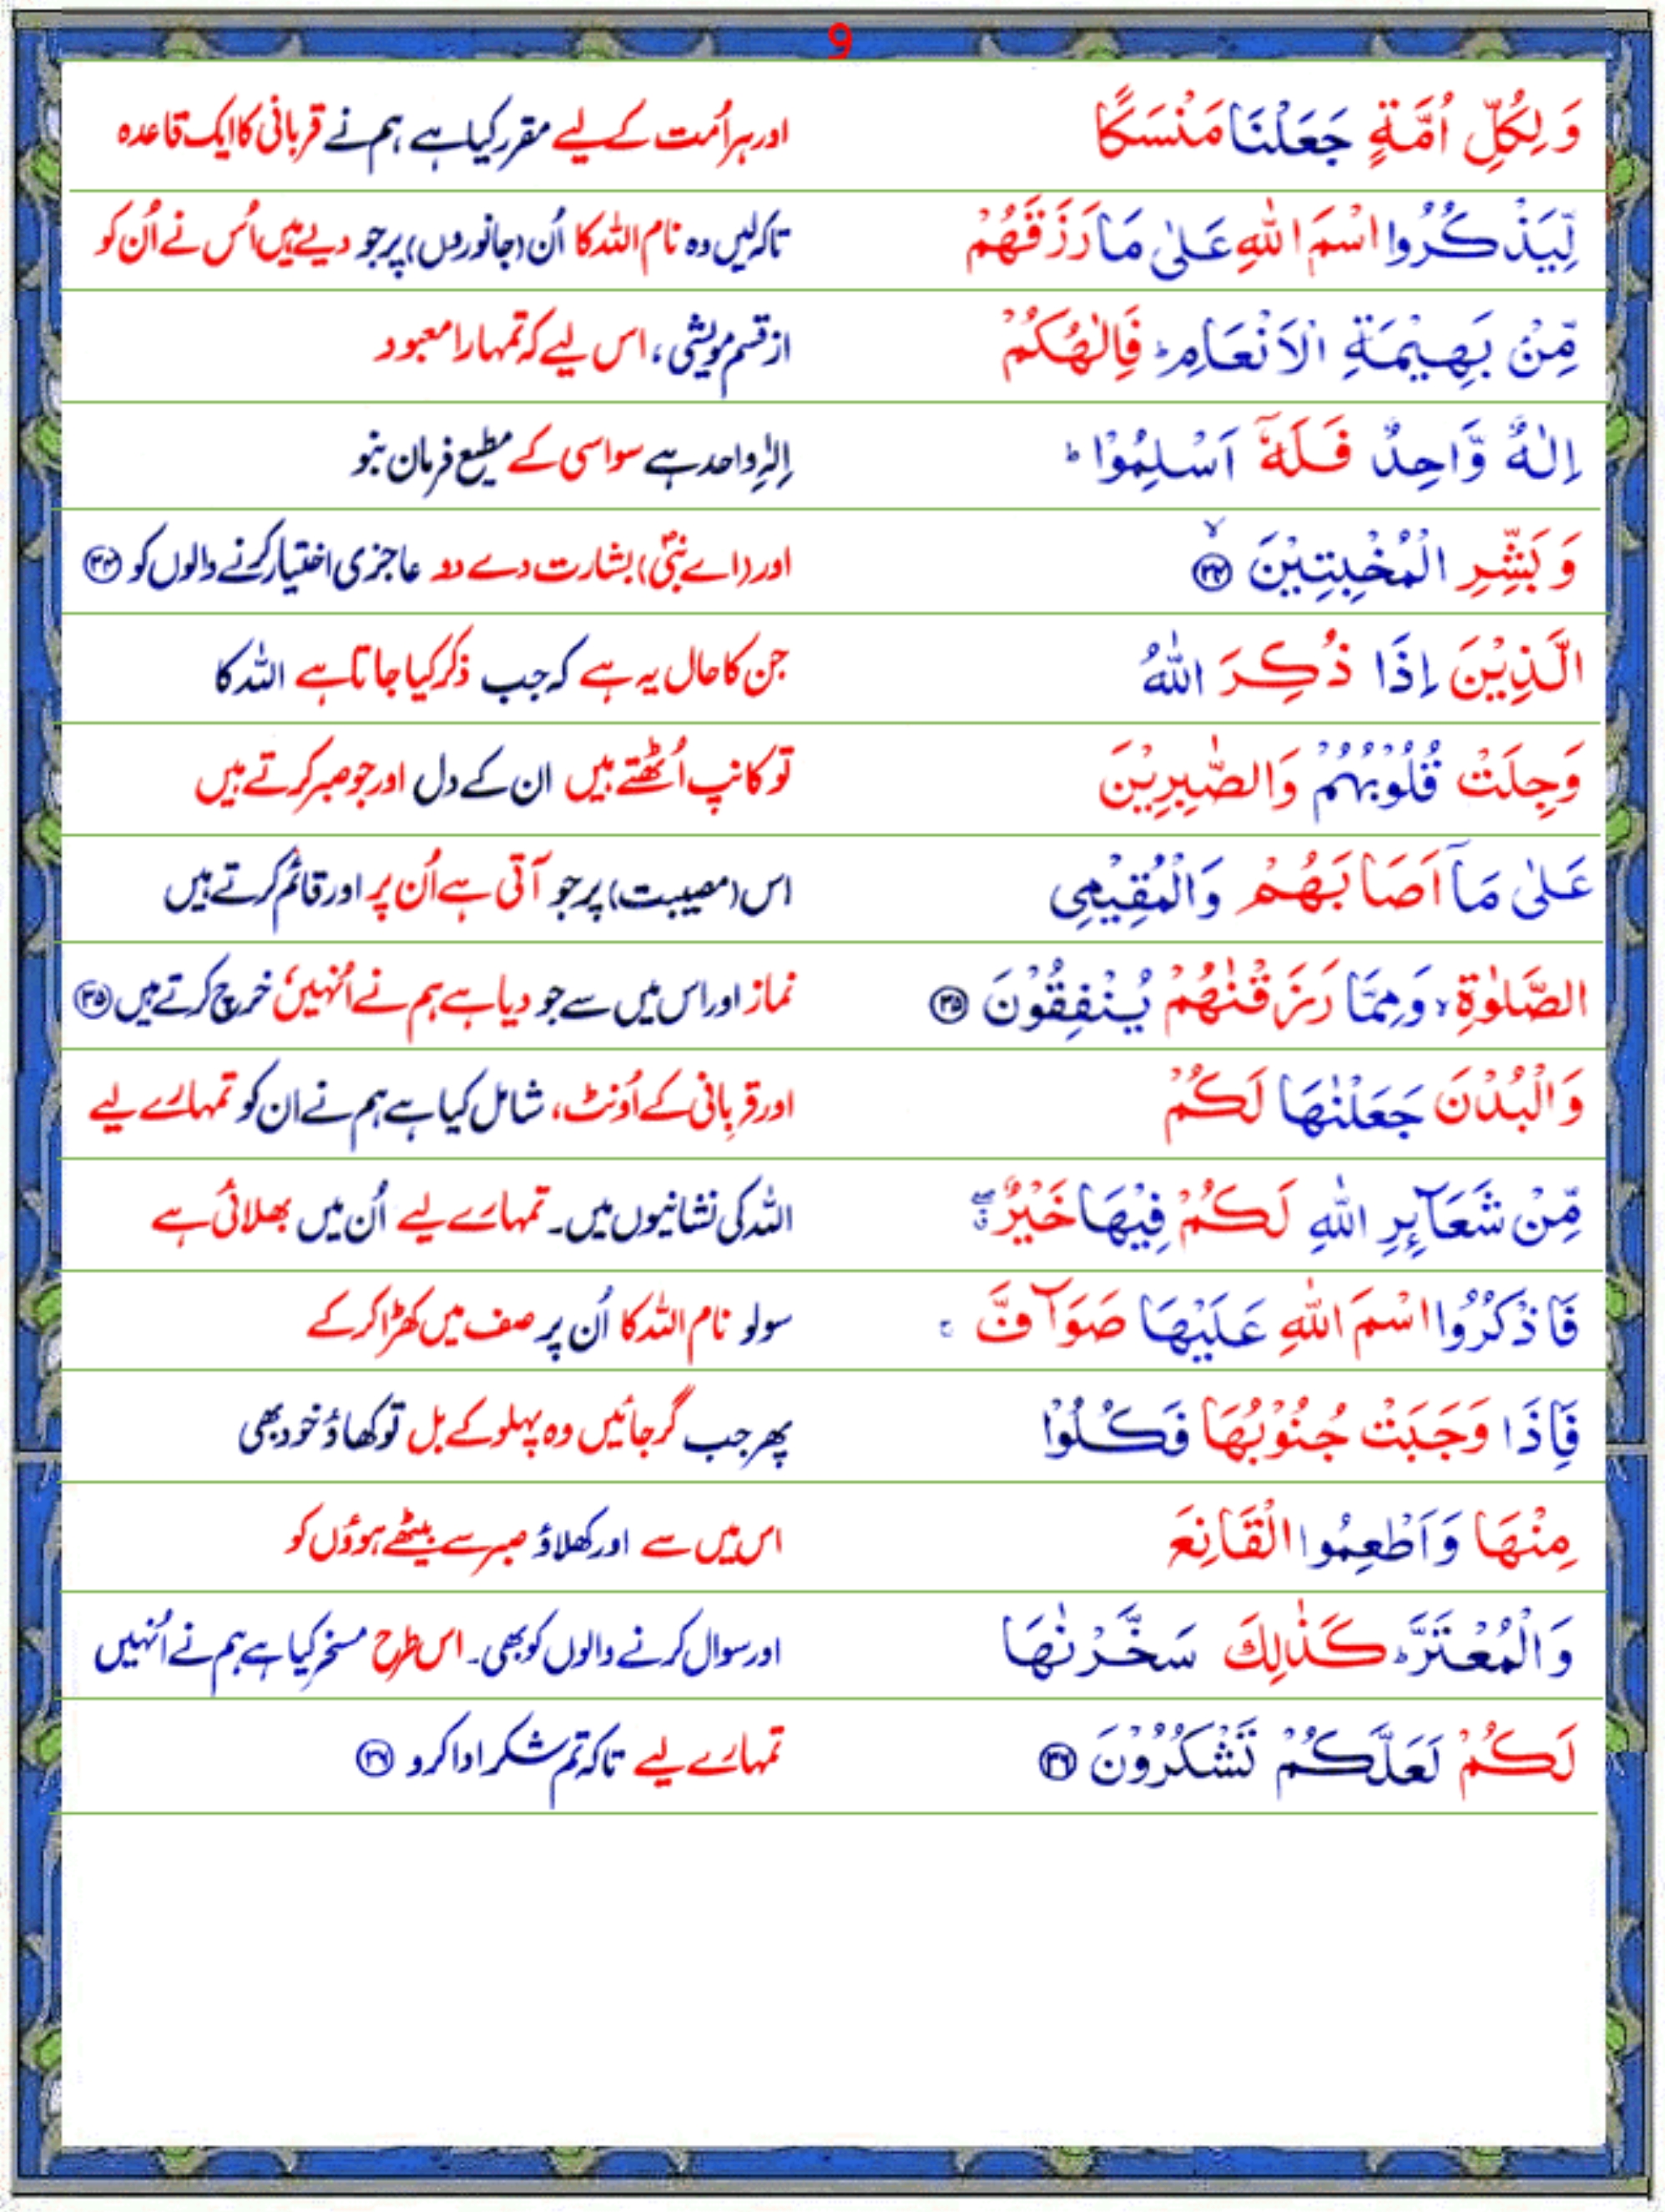 9
وَ لِكُلِّ اُمَّةٍ جَعَلْنَا مَنْسَكًا اور ہر اُمت کے لیے مقرر کیا ہے ہم نے قربانی کا ایک قاعدہ
لِّيَذْكُرُوا اسْمَ اللّٰهِ عَلٰى مَا رَزَقَهُمْ تاکہ لیں وہ نام اللہ کا اُن (جانوروں) پر جو دیے ہیں اُس نے اُن کو
مِّنْۢ بَهِيْمَةِ الْاَنْعَامِ ؕ فَاِلٰهُكُمْ از قسم مویشی، اس لیے کہ تمہارا معبود
اِلٰهٌ وَّاحِدٌ فَلَهٗٓ اَسْلِمُوْا ؕ اِلٰہِ واحد ہے سو اسی کے مطیع فرمان بنو
وَ بَشِّرِ الْمُخْبِتِيْنَ ۙ ﴿۳۴﴾ اور (اے نبیؐ) بشارت دے دو عاجزی اختیار کرنے والوں کو ﴿۳۴﴾
الَّذِيْنَ اِذَا ذُكِرَ اللّٰهُ جن کا حال یہ ہے کہ جب ذکر کیا جاتا ہے اللہ کا
وَجِلَتْ قُلُوْبُهُمْ وَالصّٰبِرِيْنَ تو کانپ اُٹھتے ہیں ان کے دل اور جو صبر کرتے ہیں
عَلٰى مَاۤ اَصَابَهُمْ وَالْمُقِيْمِى اس (مصیبت) پر جو آتی ہے اُن پر اور قائم کرتے ہیں
الصَّلٰوةِ ۙ وَمِمَّا رَزَقْنٰهُمْ يُنْفِقُوْنَ ﴿۳۵﴾ نماز اور اس میں سے جو دیا ہے ہم نے اُنہیں خرچ کرتے ہیں ﴿۳۵﴾
وَالْبُدْنَ جَعَلْنٰهَا لَكُمْ اور قربانی کے اُونٹ، شامل کیا ہے ہم نے ان کو تمہارے لیے
مِّنْ شَعَآئِرِ اللّٰهِ لَكُمْ فِيْهَا خَيْرٌ ۖ اللہ کی نشانیوں میں۔ تمہارے لیے اُن میں بھلائی ہے
فَاذْكُرُوا اسْمَ اللّٰهِ عَلَيْهَا صَوَآفَّ ۚ سو لو نام اللہ کا اُن پر صف میں کھڑا کر کے
فَاِذَا وَجَبَتْ جُنُوْبُهَا فَكُلُوْا پھر جب گر جائیں وہ پہلو کے بل تو کھاؤ خود بھی
مِنْهَا وَ اَطْعِمُوا الْقَانِعَ اس میں سے اور کھلاؤ صبر سے بیٹھے ہوؤں کو
وَالْمُعْتَرَّ ؕ كَذٰلِكَ سَخَّرْنٰهَا اور سوال کرنے والوں کو بھی۔ اس طرح مسخر کیا ہے ہم نے اُنہیں
لَكُمْ لَعَلَّكُمْ تَشْكُرُوْنَ ﴿۳۶﴾ تمہارے لیے تاکہ تم شکر ادا کرو ﴿۳۶﴾